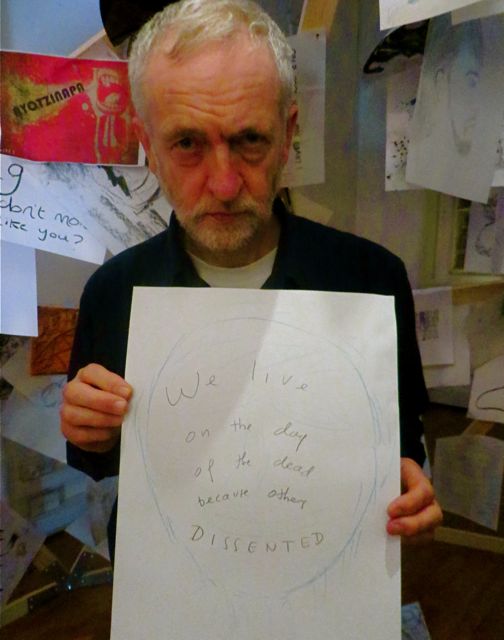 AYOTZINAPA
g
don't mo..
like you?
We live
on the day
of the dead
because others
DISSENTED